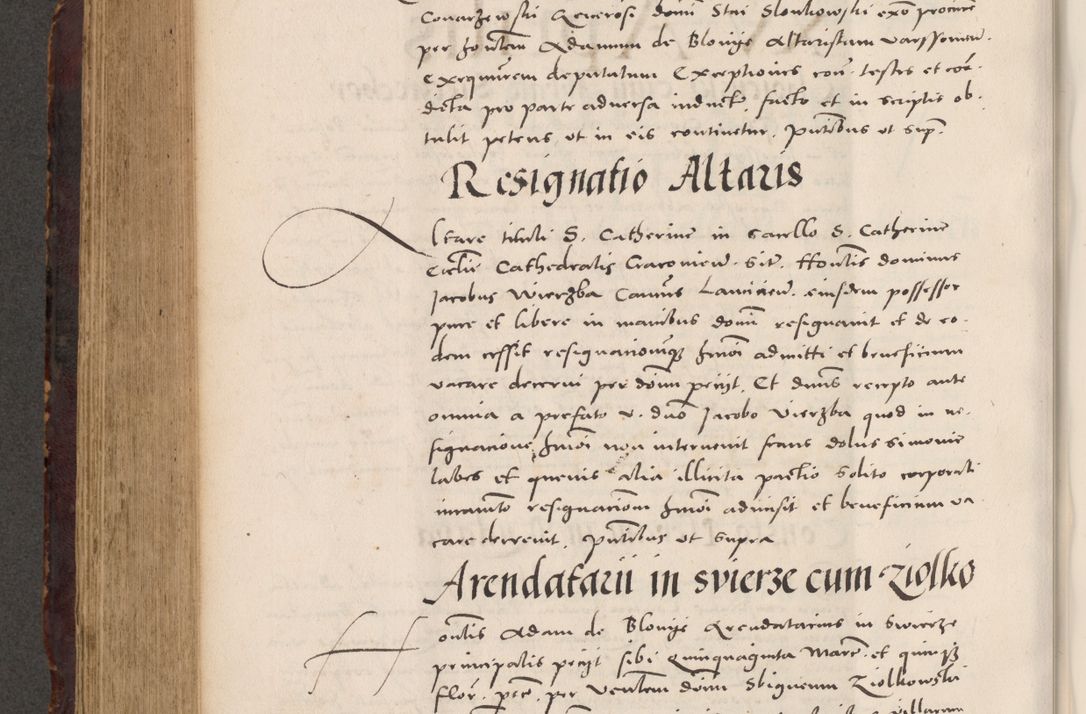 Conarzewski Generosi domi Stni Slonkowski exo procure
per hontem Adamum de Blonye Altaristam varssowien.
Exequutem deputatum Exceptiones con. testes et eor.
dicta pro parte adversa inducto. facto et in scriptis ob-
tulit petens ut in eis continetur. Pntibus ut sup.
Resignatio Altaris
Altare tituli S. Catherine in Sacello S. Catherine
Ecclie Cathedralis Cracovien. sit. Hontis dominus
Jacobus Wierzba Canus Lancicien. eiusdem possessor
pure et libere in manibus domi resignavit et de eo-
dem cessit resignacionemq hmoi admitti et beneficium
vacare decerni per dom petiit. Et dnus recepto ante
omnia a prefato v. dno Jacobo Vierzba quod in re-
signacione hmoi non intervenit fraus dolus simonie
labes et quevis alia illicita pactio solito corporali
iuramto resignacionem hmoi admisit et beneficium va-
care decrevit. Pntibus ut supra
Arendatarii in svierze cum Ziolko
Hontis Adam de Blonye Arendatarius in Swierze
principalis petiit sibi Quinquaginta Marc. et quinqz
flor. pec. per Ventem domi Sbigneum Ziolkowski